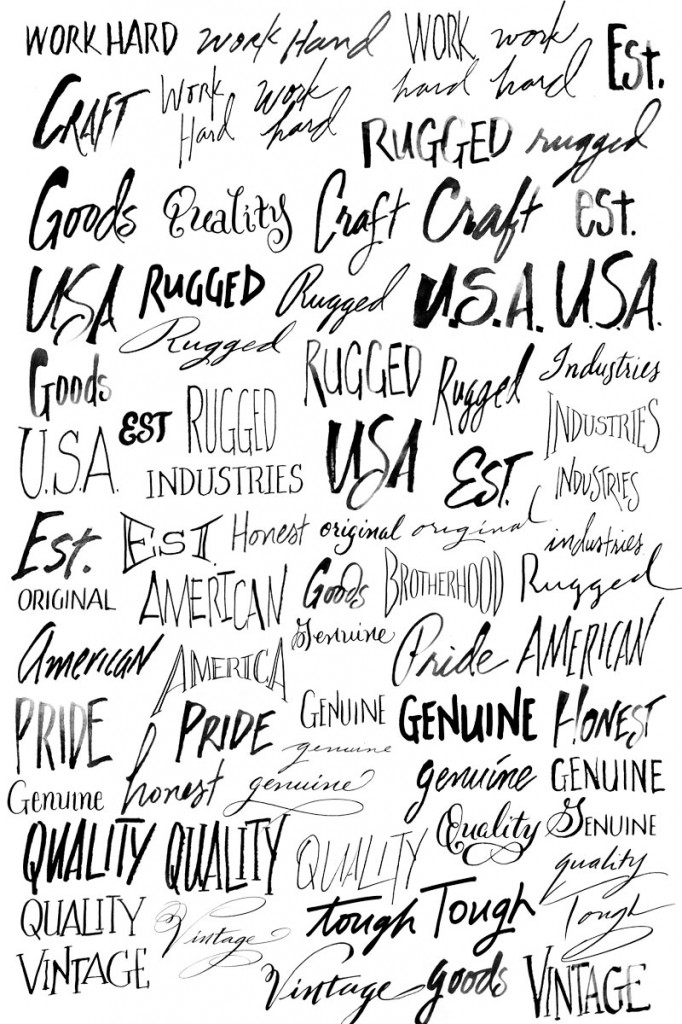 WORK HARD work Hard WORK hard work hard Est.
CRAFT Work Hard Work hard
RUGGED rugged
Goods Quality Craft Craft est.
USA RUGGED Rugged U.S.A. U.S.A.
Rugged
Goods RUGGED Rugged Industries
U.S.A. EST RUGGED USA INDUSTRIES
INDUSTRIES EST. INDUSTRIES
Est. EST. Honest original original industries
ORIGINAL AMERICAN Goods BROTHERHOOD Rugged
Genuine
American AMERICA Pride AMERICAN
PRIDE PRIDE GENUINE GENUINE HONEST
genuine
Genuine honest genuine genuine GENUINE
QUALITY QUALITY QUALITY Quality GENUINE
quality
QUALITY Vintage tough Tough Tough
VINTAGE Vintage goods VINTAGE